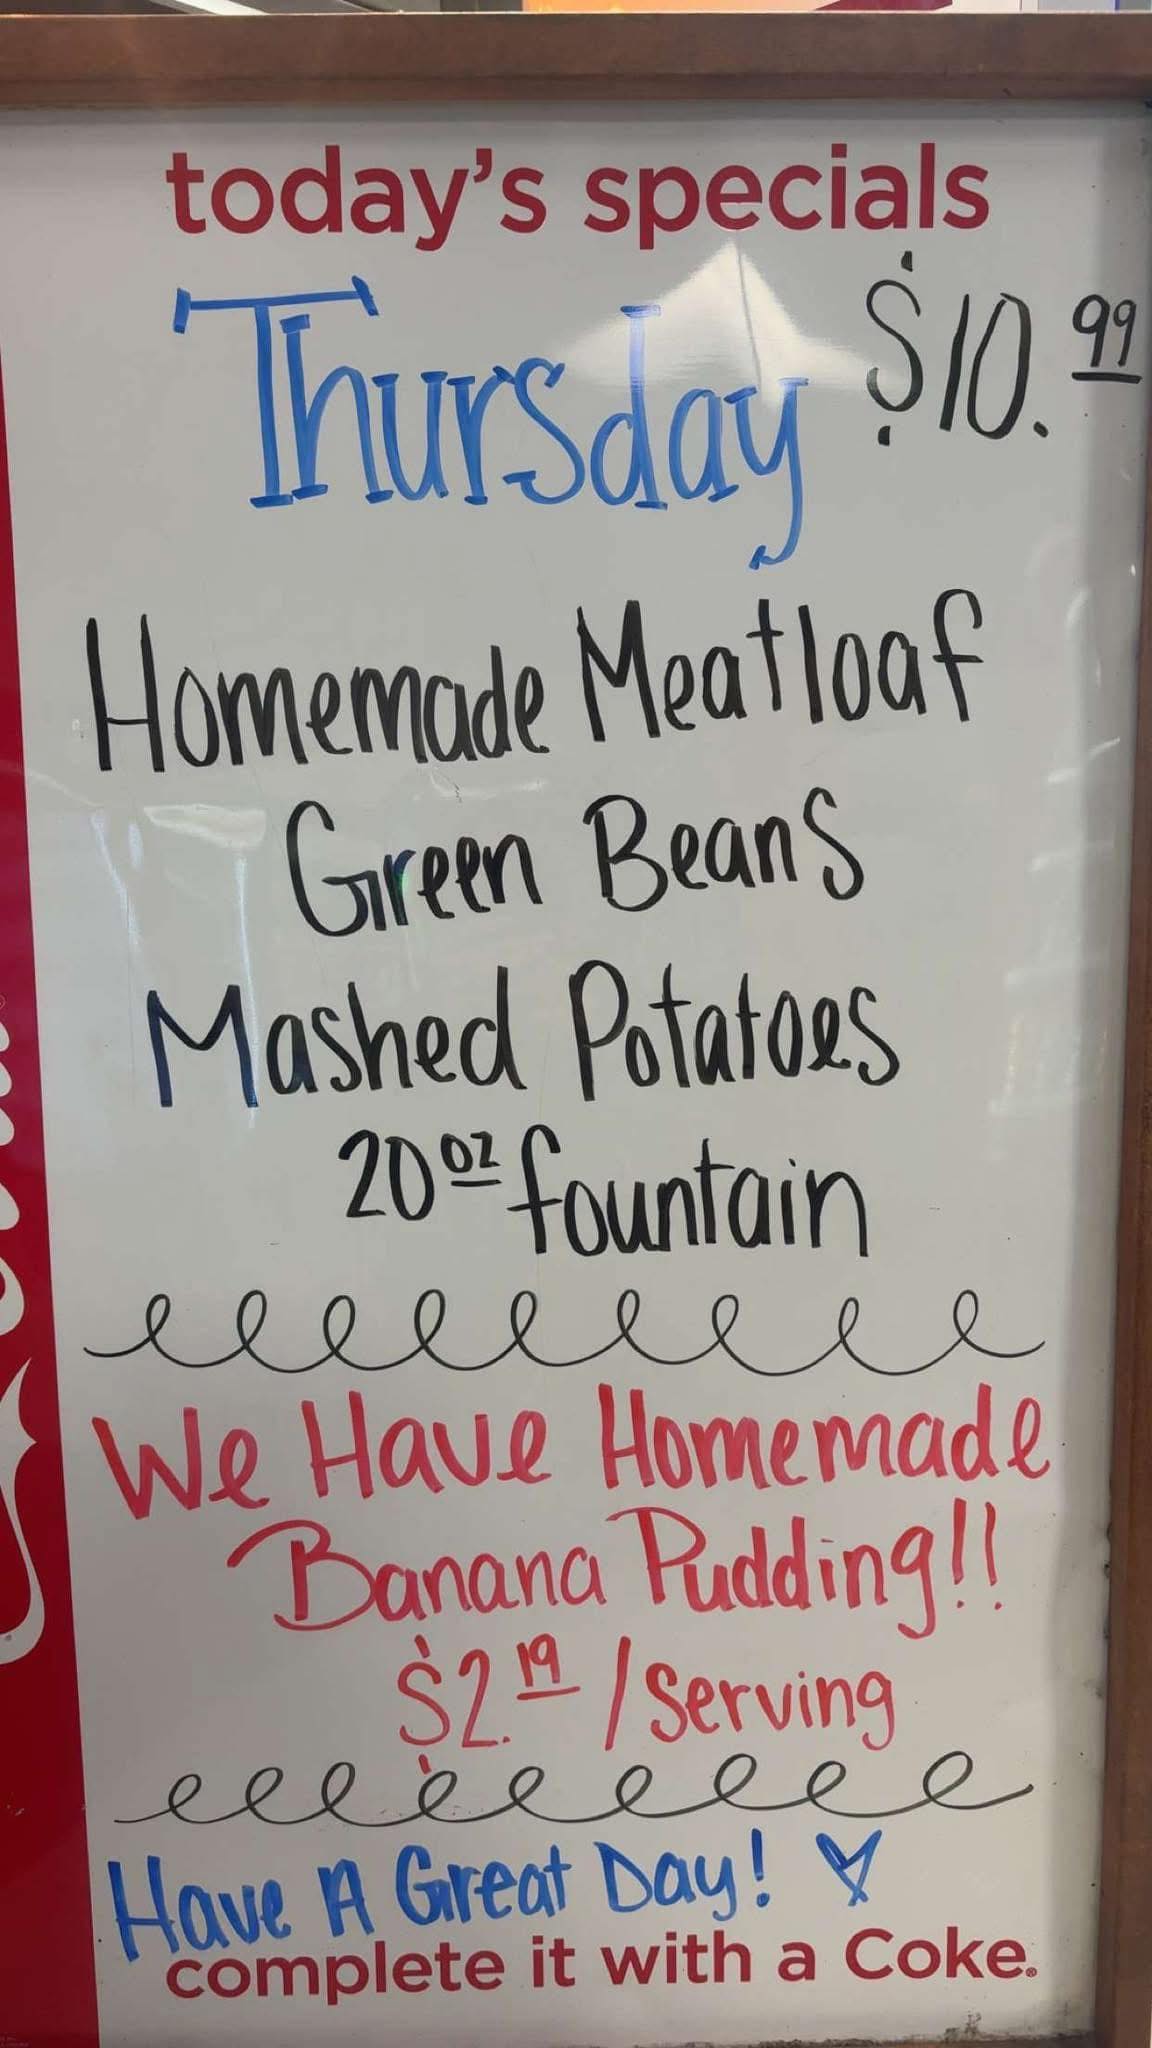 today's specials
Thursday $10.99
Homemade Meatloaf
Green Beans
Mashed Potatoes
20 oz fountain
We Have Homemade
Banana Pudding!!
$2.19 / Serving
Have A Great Day!
complete it with a Coke.